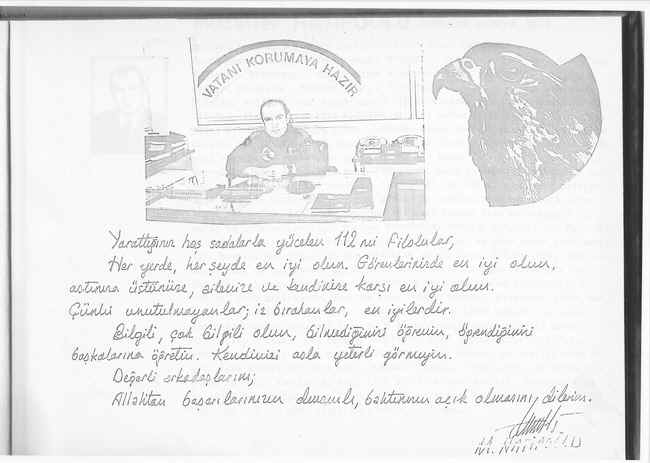 VATANI KORUMAYA HAZIR
Yarattığının hoş sadalarla yücelen 112 nci Filolular,
Her yerde, her şeyde en iyi olun. Görevlerinizde en iyi olun,
astınıza üstünüze, ailenize ve kendinize karşı en iyi olun.
Çünkü unutulmayanlar; iz bırakanlar, en iyilerdir.
Bilgili, çok bilgili olun, bilmediğinizi öğrenin, öğrendiğinizi
başkalarına öğretin. Kendinizi asla yeterli görmeyin.
Değerli arkadaşlarım;
Allahtan başarılarınızın devamlı, bahtınızın açık olmasını dilerim.
M.